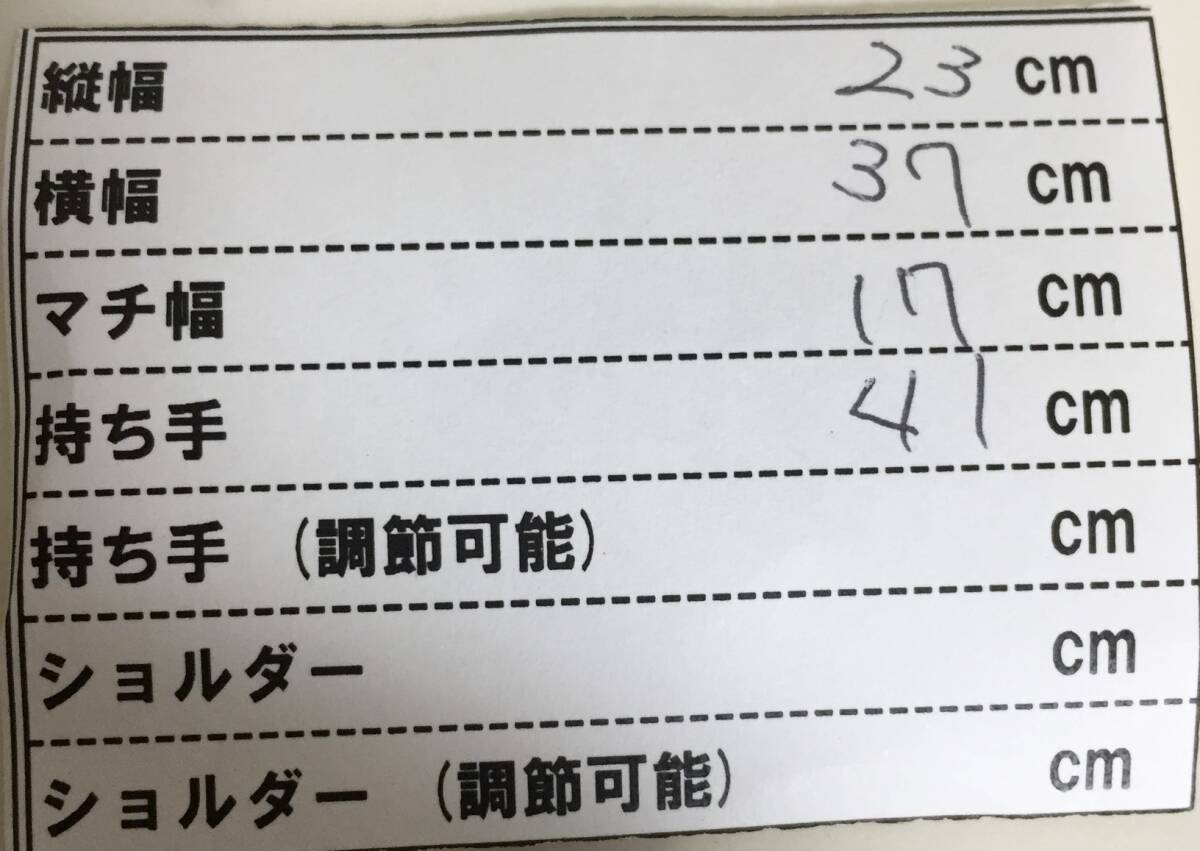 縦幅 23 cm
横幅 37 cm
マチ幅 17 cm
持ち手 41 cm
持ち手 (調節可能) cm
ショルダー cm
ショルダー (調節可能) cm